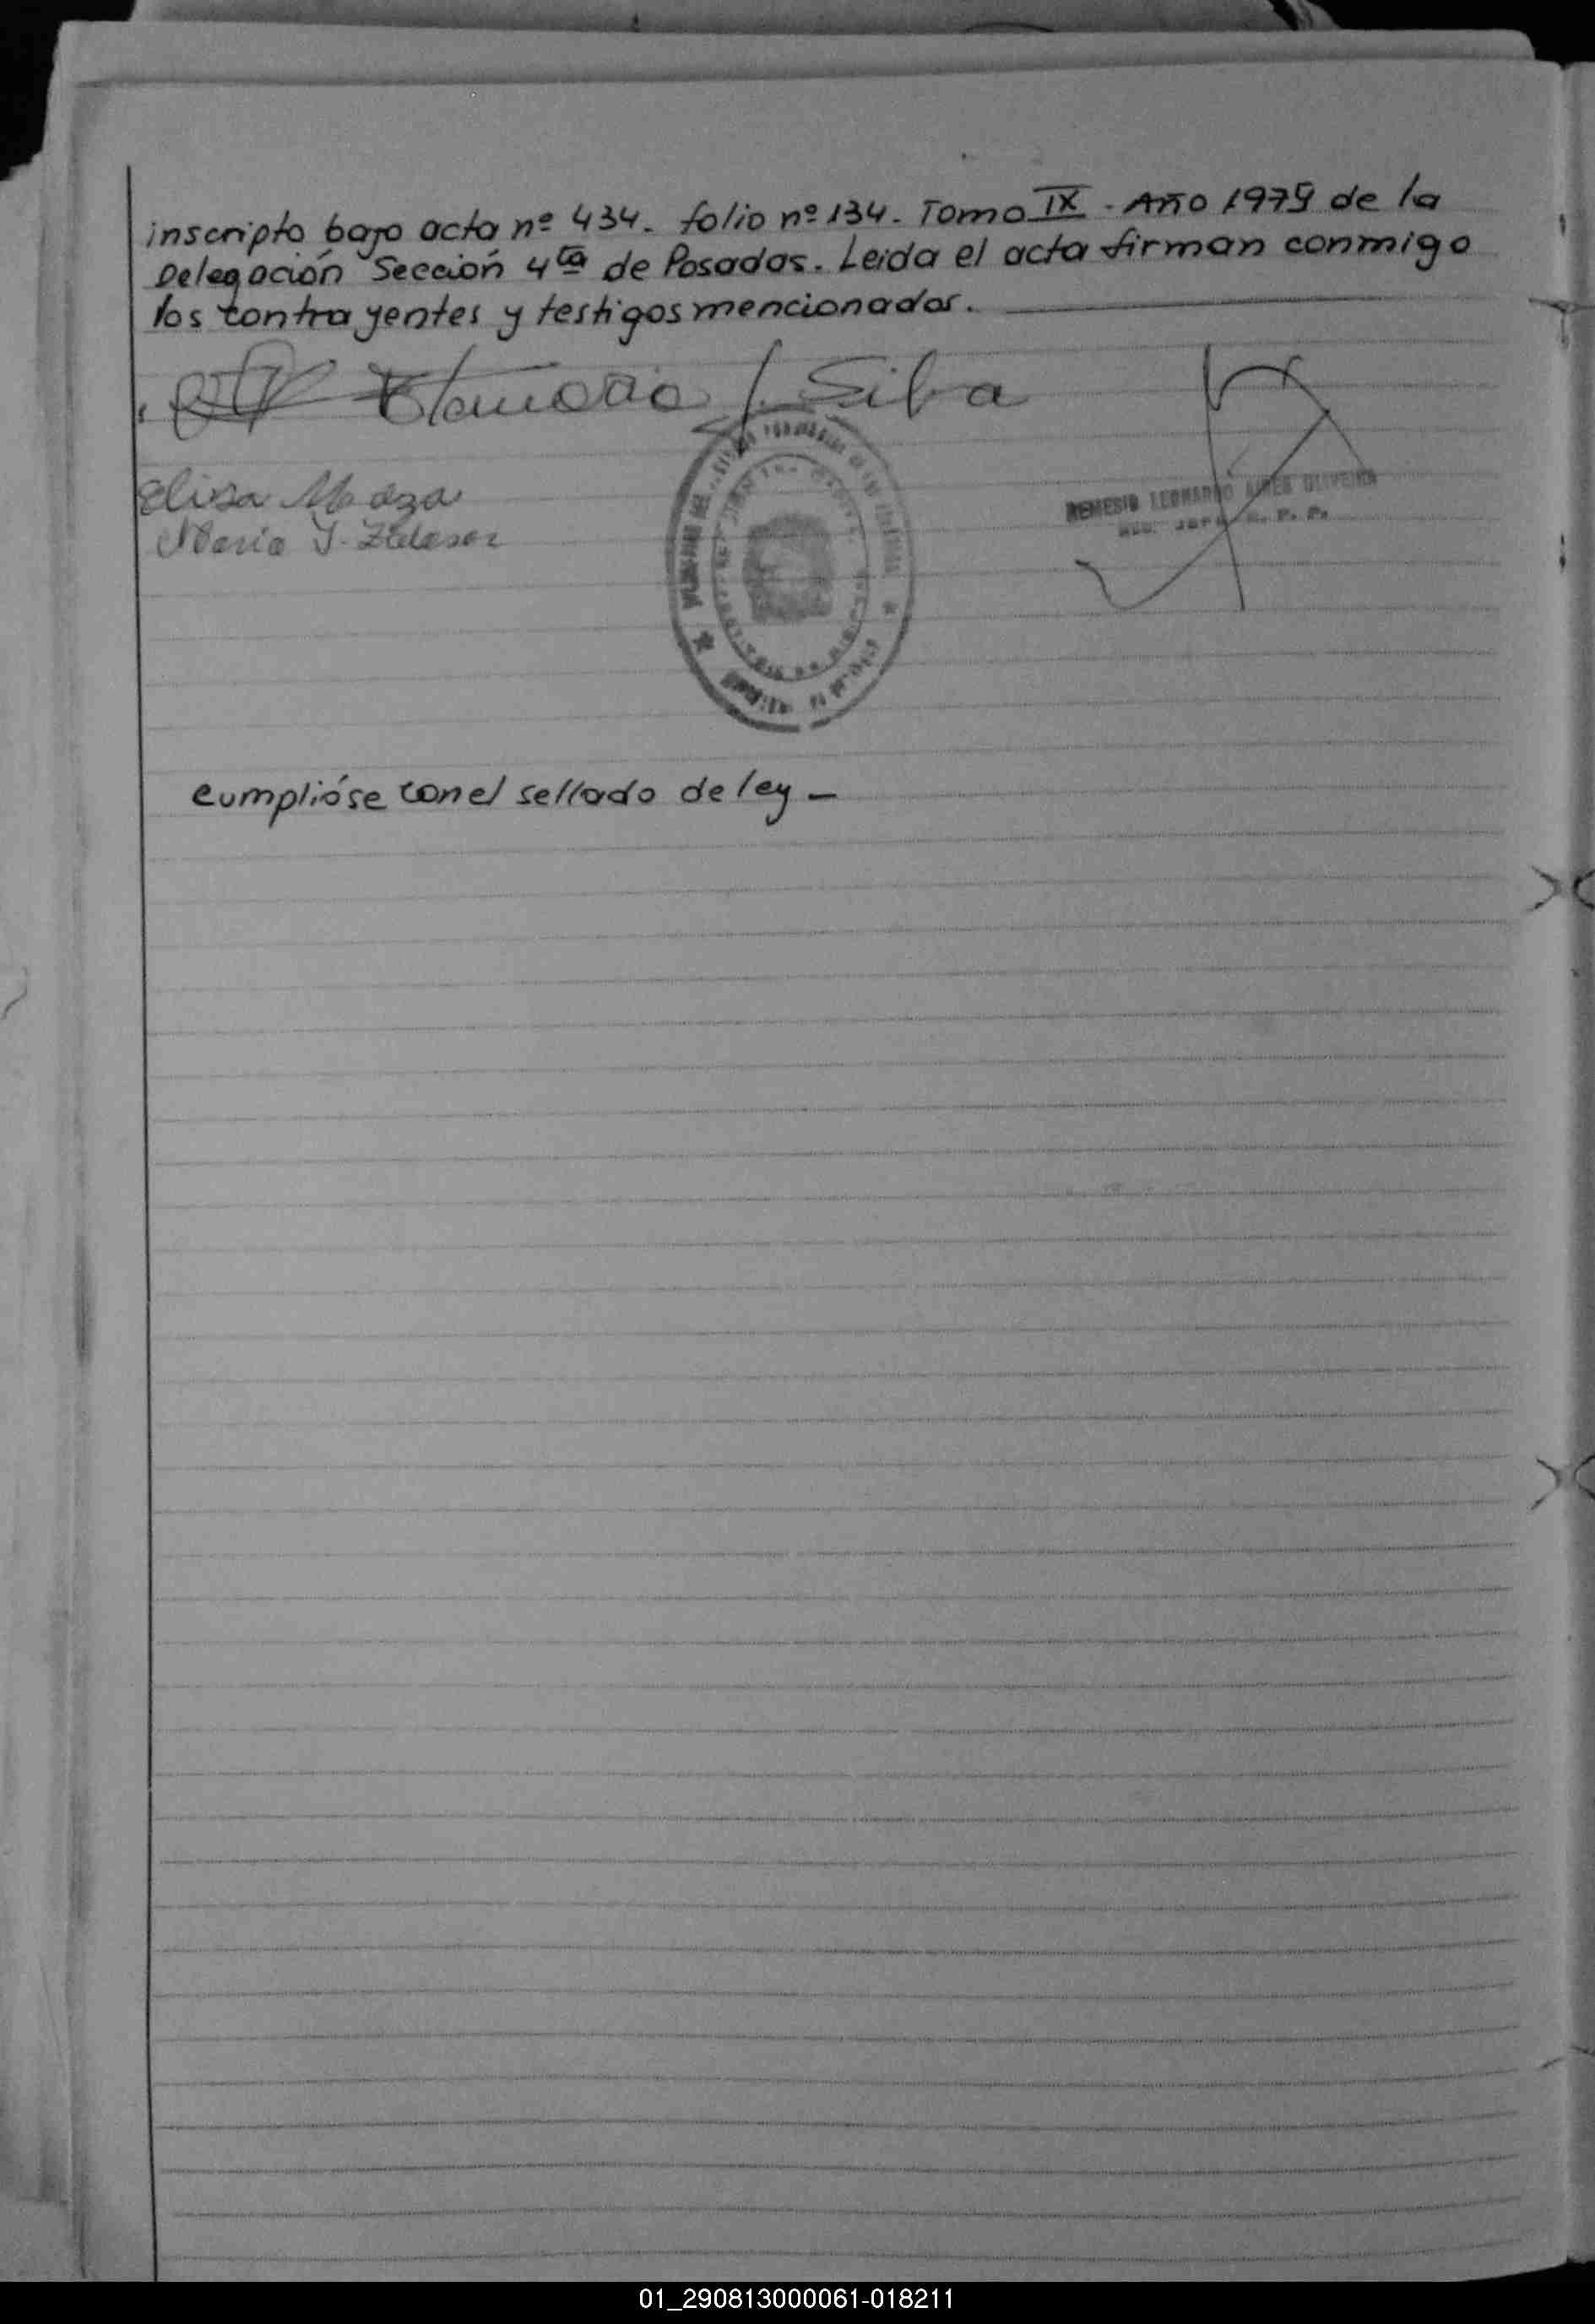 inscripto bajo acta nº 434. folio nº 134. Tomo IX - Año 1979 de la
Delegación Sección 4ta de Posadas. Leida el acta firman conmigo
los contrayentes y testigos mencionados.
J. Silva
Elisa Maza
Maria J.
NEMESIO LEONARDO AIRES OLIVEIRA
cumplióse con el sellado de ley -
01_290813000061-018211